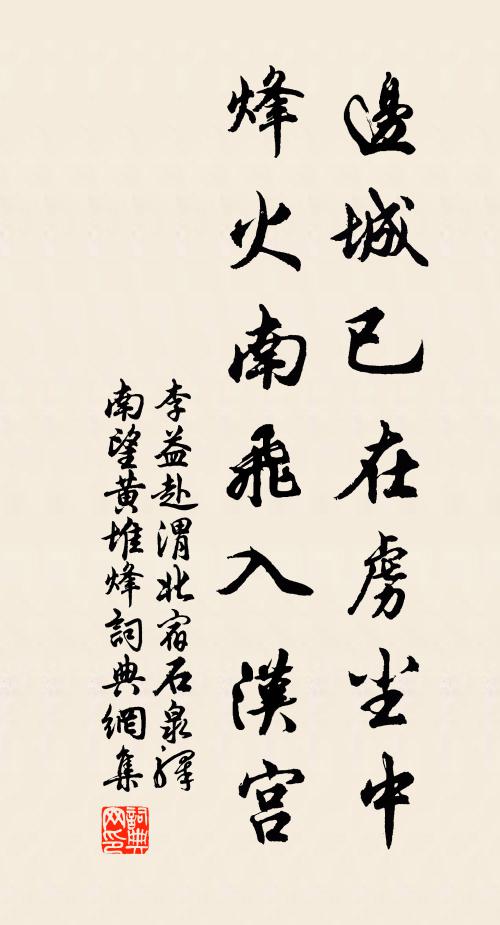 邊城已在虜尘中
烽火南飛入漢宮
李益赴渭北宿石泉驛
南望黃堆烽詞典網集
詞典网印